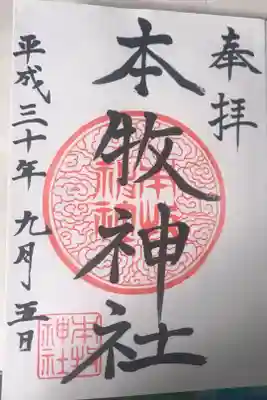 奉拝
本牧神社
平成三十年 九月 五日
本牧
神社